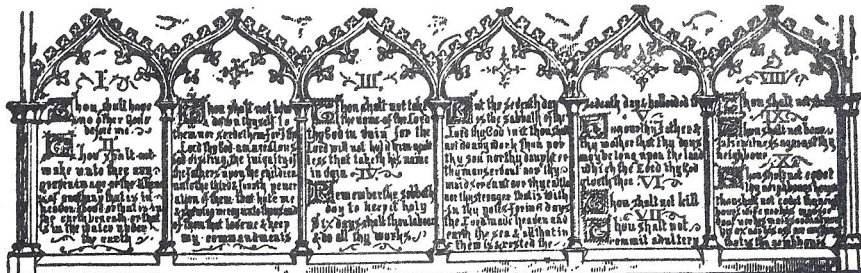 I
Thou shalt have
no other Gods
before me
II
Thou shalt not
make unto thee any
graven image or the likeness
of anything that is in
heaven above or that is in
the earth beneath or that
is in the water under
the earth
Thou shalt not bow
down thyself to
them nor serve them for I the
Lord thy God am a jealous
God visiting the iniquity of
the fathers upon the children
unto the third & fourth gener
ation of them that hate me
& shewing mercy unto thousands
of them that love me & keep
my commandments
III
Thou shalt not take
the name of the Lord
thy God in vain for the
Lord will not hold him guilt
less that taketh his name
in vain IV
Remember the sabbath
day to keep it holy
Six days shalt thou labour
& do all thy work
But the seventh day
is the sabbath of the
Lord thy God in it thou shalt
not do any work thou nor
thy son nor thy daughter nor
thy manservant nor thy
maidservant nor thy cattle
nor thy stranger that is with
in thy gates for in six days
the Lord made heaven and
earth the sea & all that in
them is & rested the
seventh day & hallowed it
V
Honour thy father &
thy mother that thy days
may be long upon the land
which the Lord thy God
giveth thee VI
Thou shalt not kill
VII
Thou shalt not
commit adultery
VIII
Thou shalt not
IX
Thou shalt not bear
false witness against thy
neighbour
X
Thou shalt not covet
thy neighbours house
thou shalt not covet thy